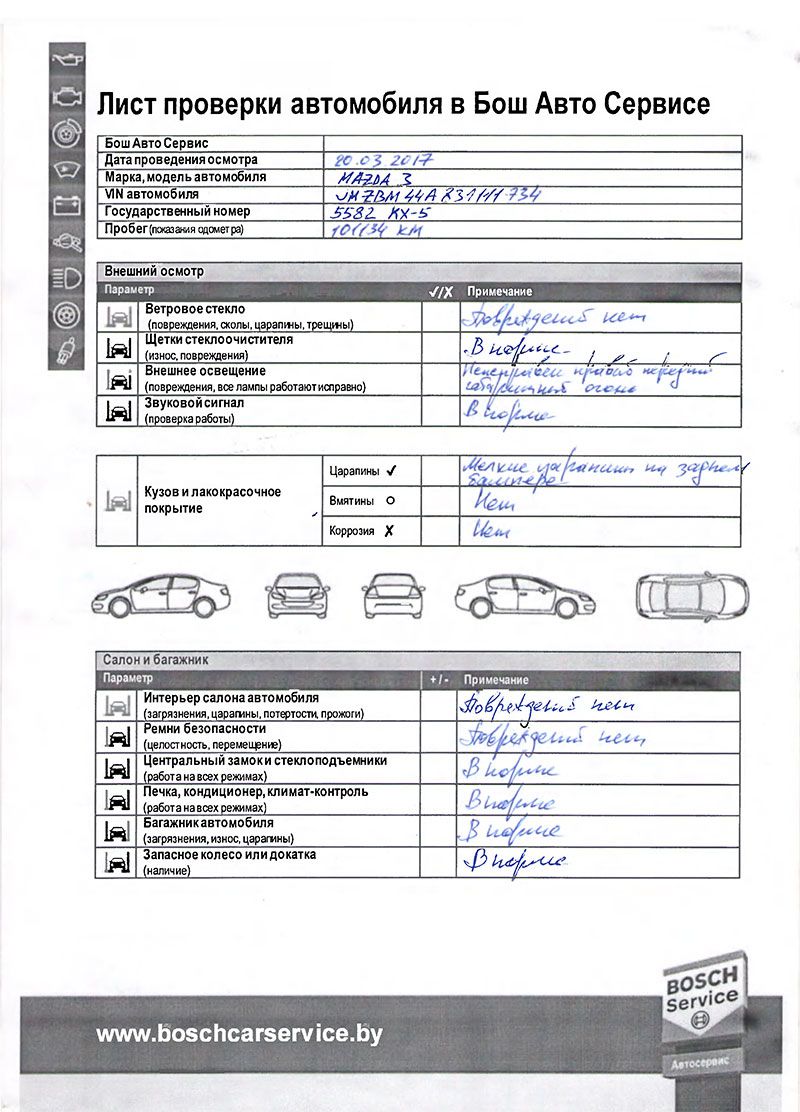 Лист проверки автомобиля в Бош Авто Сервисе
Бош Авто Сервис
Дата проведения осмотра 20.03 2017
Марка, модель автомобиля MAZDA 3
VIN автомобиля
Государственный номер 5582 KX-5
Пробег (показания одометра) 101134 КМ
Внешний осмотр
Параметр ✓/X Примечание
Ветровое стекло Повреждений нет
(повреждения, сколы, царапины, трещины)
Щетки стеклоочистителя В норме
(износ, повреждения)
Внешнее освещение Неисправен правый передний
(повреждения, все лампы работают исправно) габаритный огонь
Звуковой сигнал В норме
(проверка работы)
Царапины ✓ Мелкие царапины на заднем
бампере
Кузов и лакокрасочное
покрытие
Вмятины О Нет
Коррозия X Нет
Салон и багажник
Параметр + / - Примечание
Интерьер салона автомобиля Повреждений нет
(загрязнения, царапины, потертости, прожоги)
Ремни безопасности Повреждений нет
(целостность, перемещение)
Центральный замок и стеклоподъемники В норме
(работа на всех режимах)
Печка, кондиционер, климат-контроль В норме
(работа на всех режимах)
Багажник автомобиля В норме
(загрязнения, износ, царапины)
Запасное колесо или докатка В норме
(наличие)
BOSCH
Service
www.boschcarservice.by
Автосервис